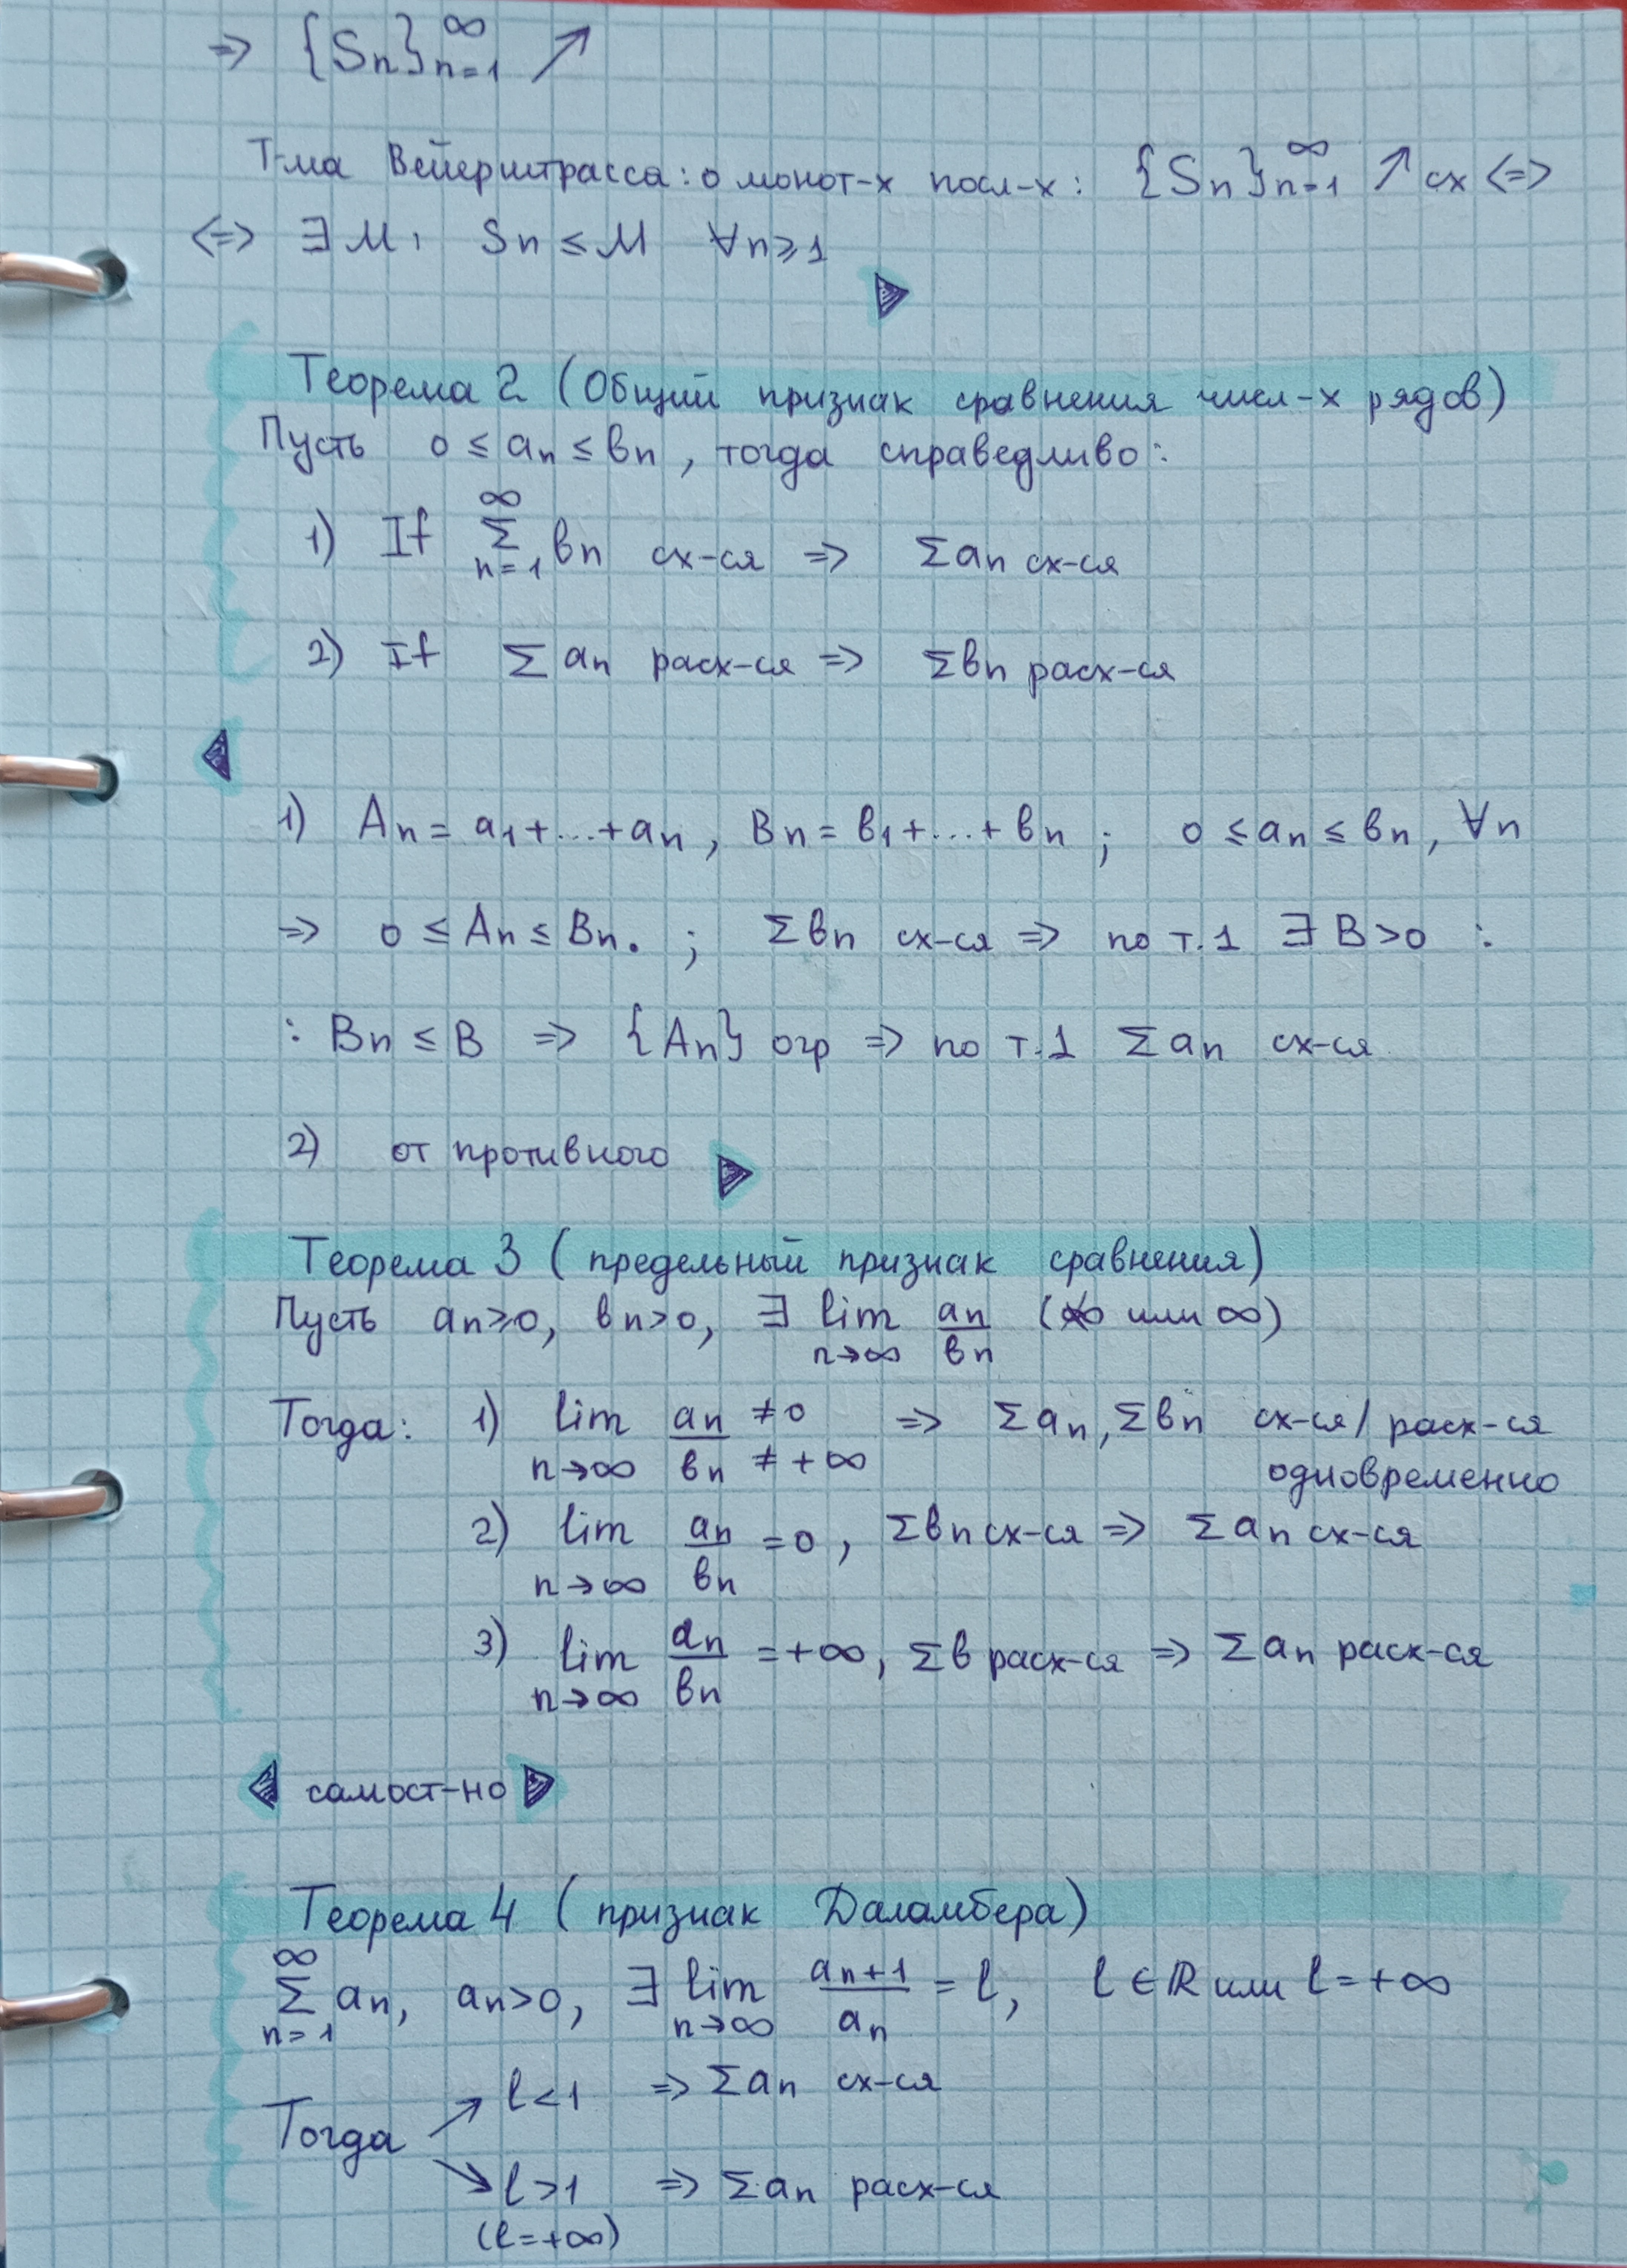 ⇒ {Sn}∞n=1 ↗
Т-ма Вейерштрасса: о монот-х посл-х: {Sn}∞n=1 ↗ сх <=>
<=> ∃ M, Sn ≤ M ∀n≥1
Теорема 2 (Общий признак сравнения числ-х рядов)
Пусть 0 ≤ an ≤ вn, тогда справедливо:
1) If ∞Σn=1 вn сх-ся ⇒ Σan сх-ся
2) If Σ an расх-ся ⇒ Σвn расх-ся
1) An = a1+...+an, Bn = в1+...+вn; 0 ≤ an ≤ вn, ∀n
⇒ 0 ≤ An ≤ Bn. ; Σвn сх-ся ⇒ по т.1 ∃ B>0 :
: Bn ≤ B ⇒ {An} огр ⇒ по т.1 Σ an сх-ся
2) от противного
Теорема 3 (предельный признак сравнения)
Пусть an≥0, вn>0, ∃ lim n→∞ an/вn (или ∞)
Тогда: 1) lim n→∞ an/вn ≠0 ≠+∞ ⇒ Σan, Σвn сх-ся/расх-ся
одновременно
2) lim n→∞ an/вn =0, Σвn сх-ся ⇒ Σan сх-ся
3) lim n→∞ an/вn =+∞, Σв расх-ся ⇒ Σan расх-ся
самост-но
Теорема 4 (признак Даламбера)
∞Σn=1 an, an>0, ∃ lim n→∞ an+1/an = l, l∈ℝ или l=+∞
Тогда l<1 ⇒ Σan сх-ся
l>1 ⇒ Σan расх-ся
(l=+∞)